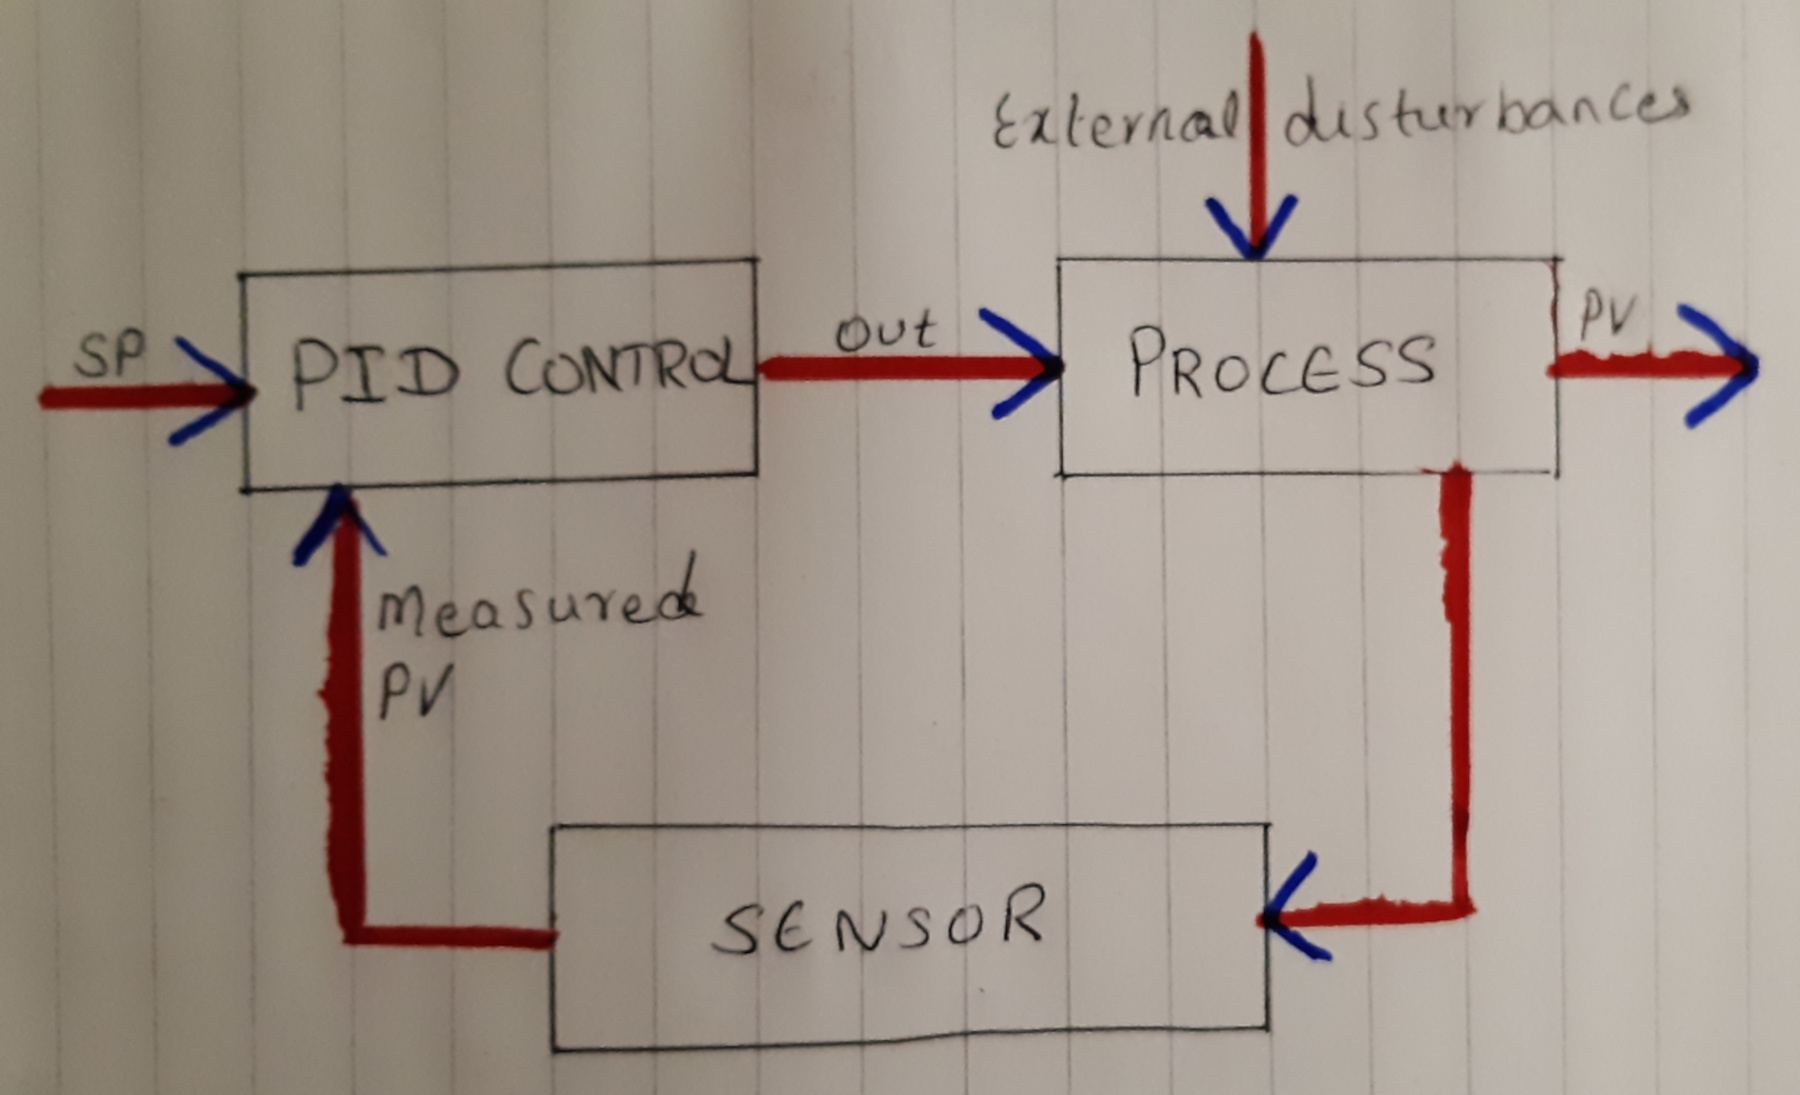 External disturbances
SP
PID CONTROL
out
PROCESS
PV
Measured
PV
SENSOR